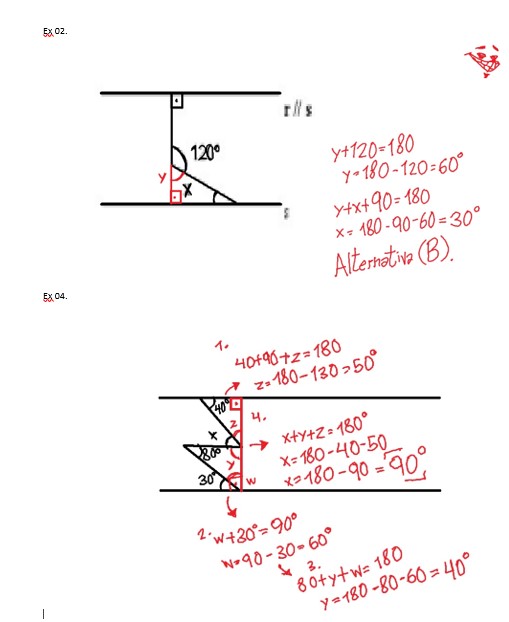 Ex 02.
r // s
120°
y
x
s
y+120=180
y=180-120=60°
y+x+90=180
x=180-90-60=30°
Alternativa (B).
Ex 04.
1.
40+90+z=180
z=180-130=50°
40°
z
4.
x
x+y+z=180°
x=180-40-50
x=180-90=90°
80°
y
30°
w
2. w+30°=90°
w=90-30=60°
3.
80+y+w=180
y=180-80-60=40°